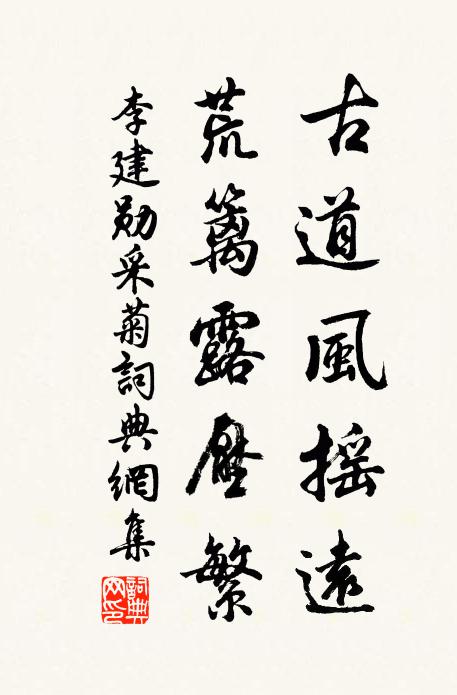 古道風摇遠
荒篱露壓繁
李建勛采菊詞典網集
詞典网印